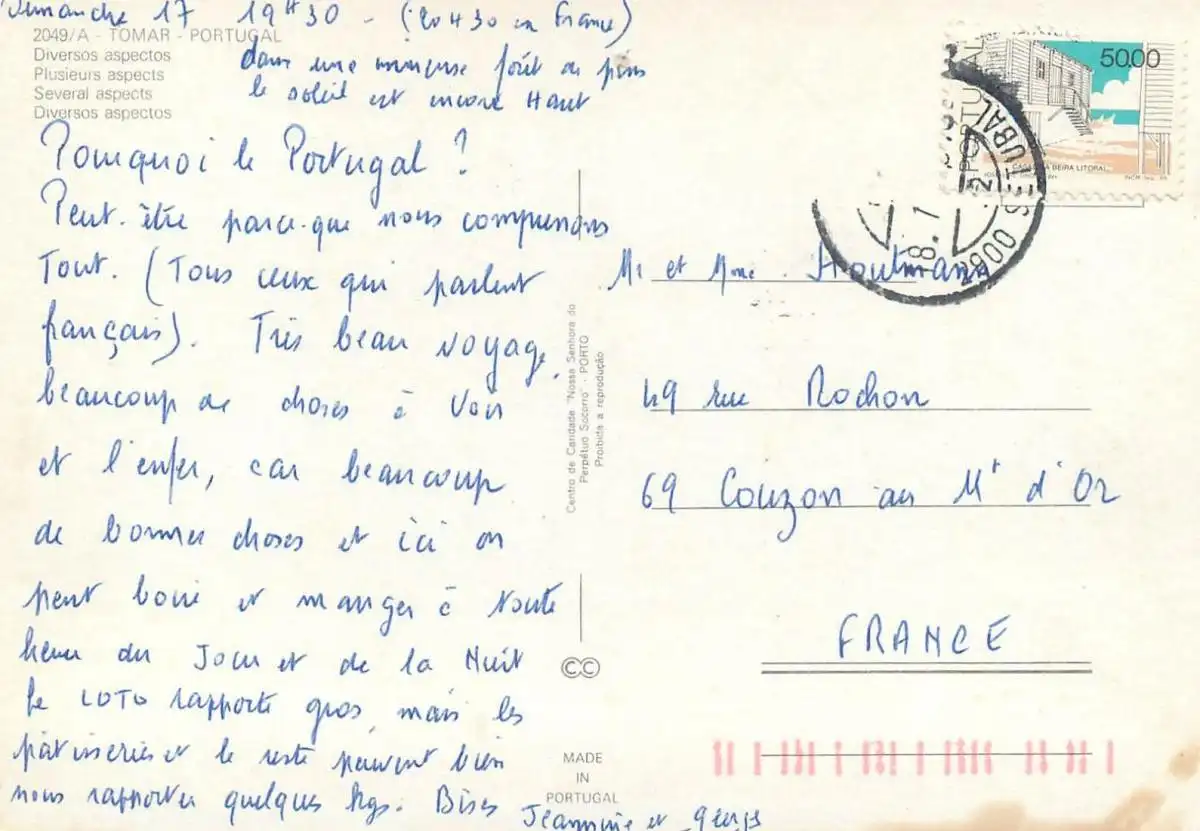 Dimanche 17 19H30 - (20H30 en France)
2049/A - TOMAR - PORTUGAL
Diversos aspectos
Plusieurs aspects
Several aspects
Diversos aspectos
dans une immense forêt de pins
le soleil est encore Haut
Pourquoi le Portugal ?
Peut-être parce-que nous comprenons
Tout. (Tous ceux qui parlent
français). Très beau voyage,
beaucoup de choses à voir
et l'enfer, car beaucoup
de bonnes choses et ici on
peut boire et manger à toute
heure du Jour et de la Nuit
Le LOTO rapporte gros, mais les
patisseries et le reste peuvent bien
nous rapporter quelques kgs. Bises
Jeannine et
Centro de Caridade "Nossa Senhora do
Perpétuo Socorro" - PORTO
Proibida a reprodução
CC
MADE
IN
PORTUGAL
PORTUGAL
50.00
CASAS DA BEIRA LITORAL
2900 SETUBAL
18.7
Mr et Mme. Houlmann
49 rue Rochon
69 Couzon au Mt d'Or
FRANCE